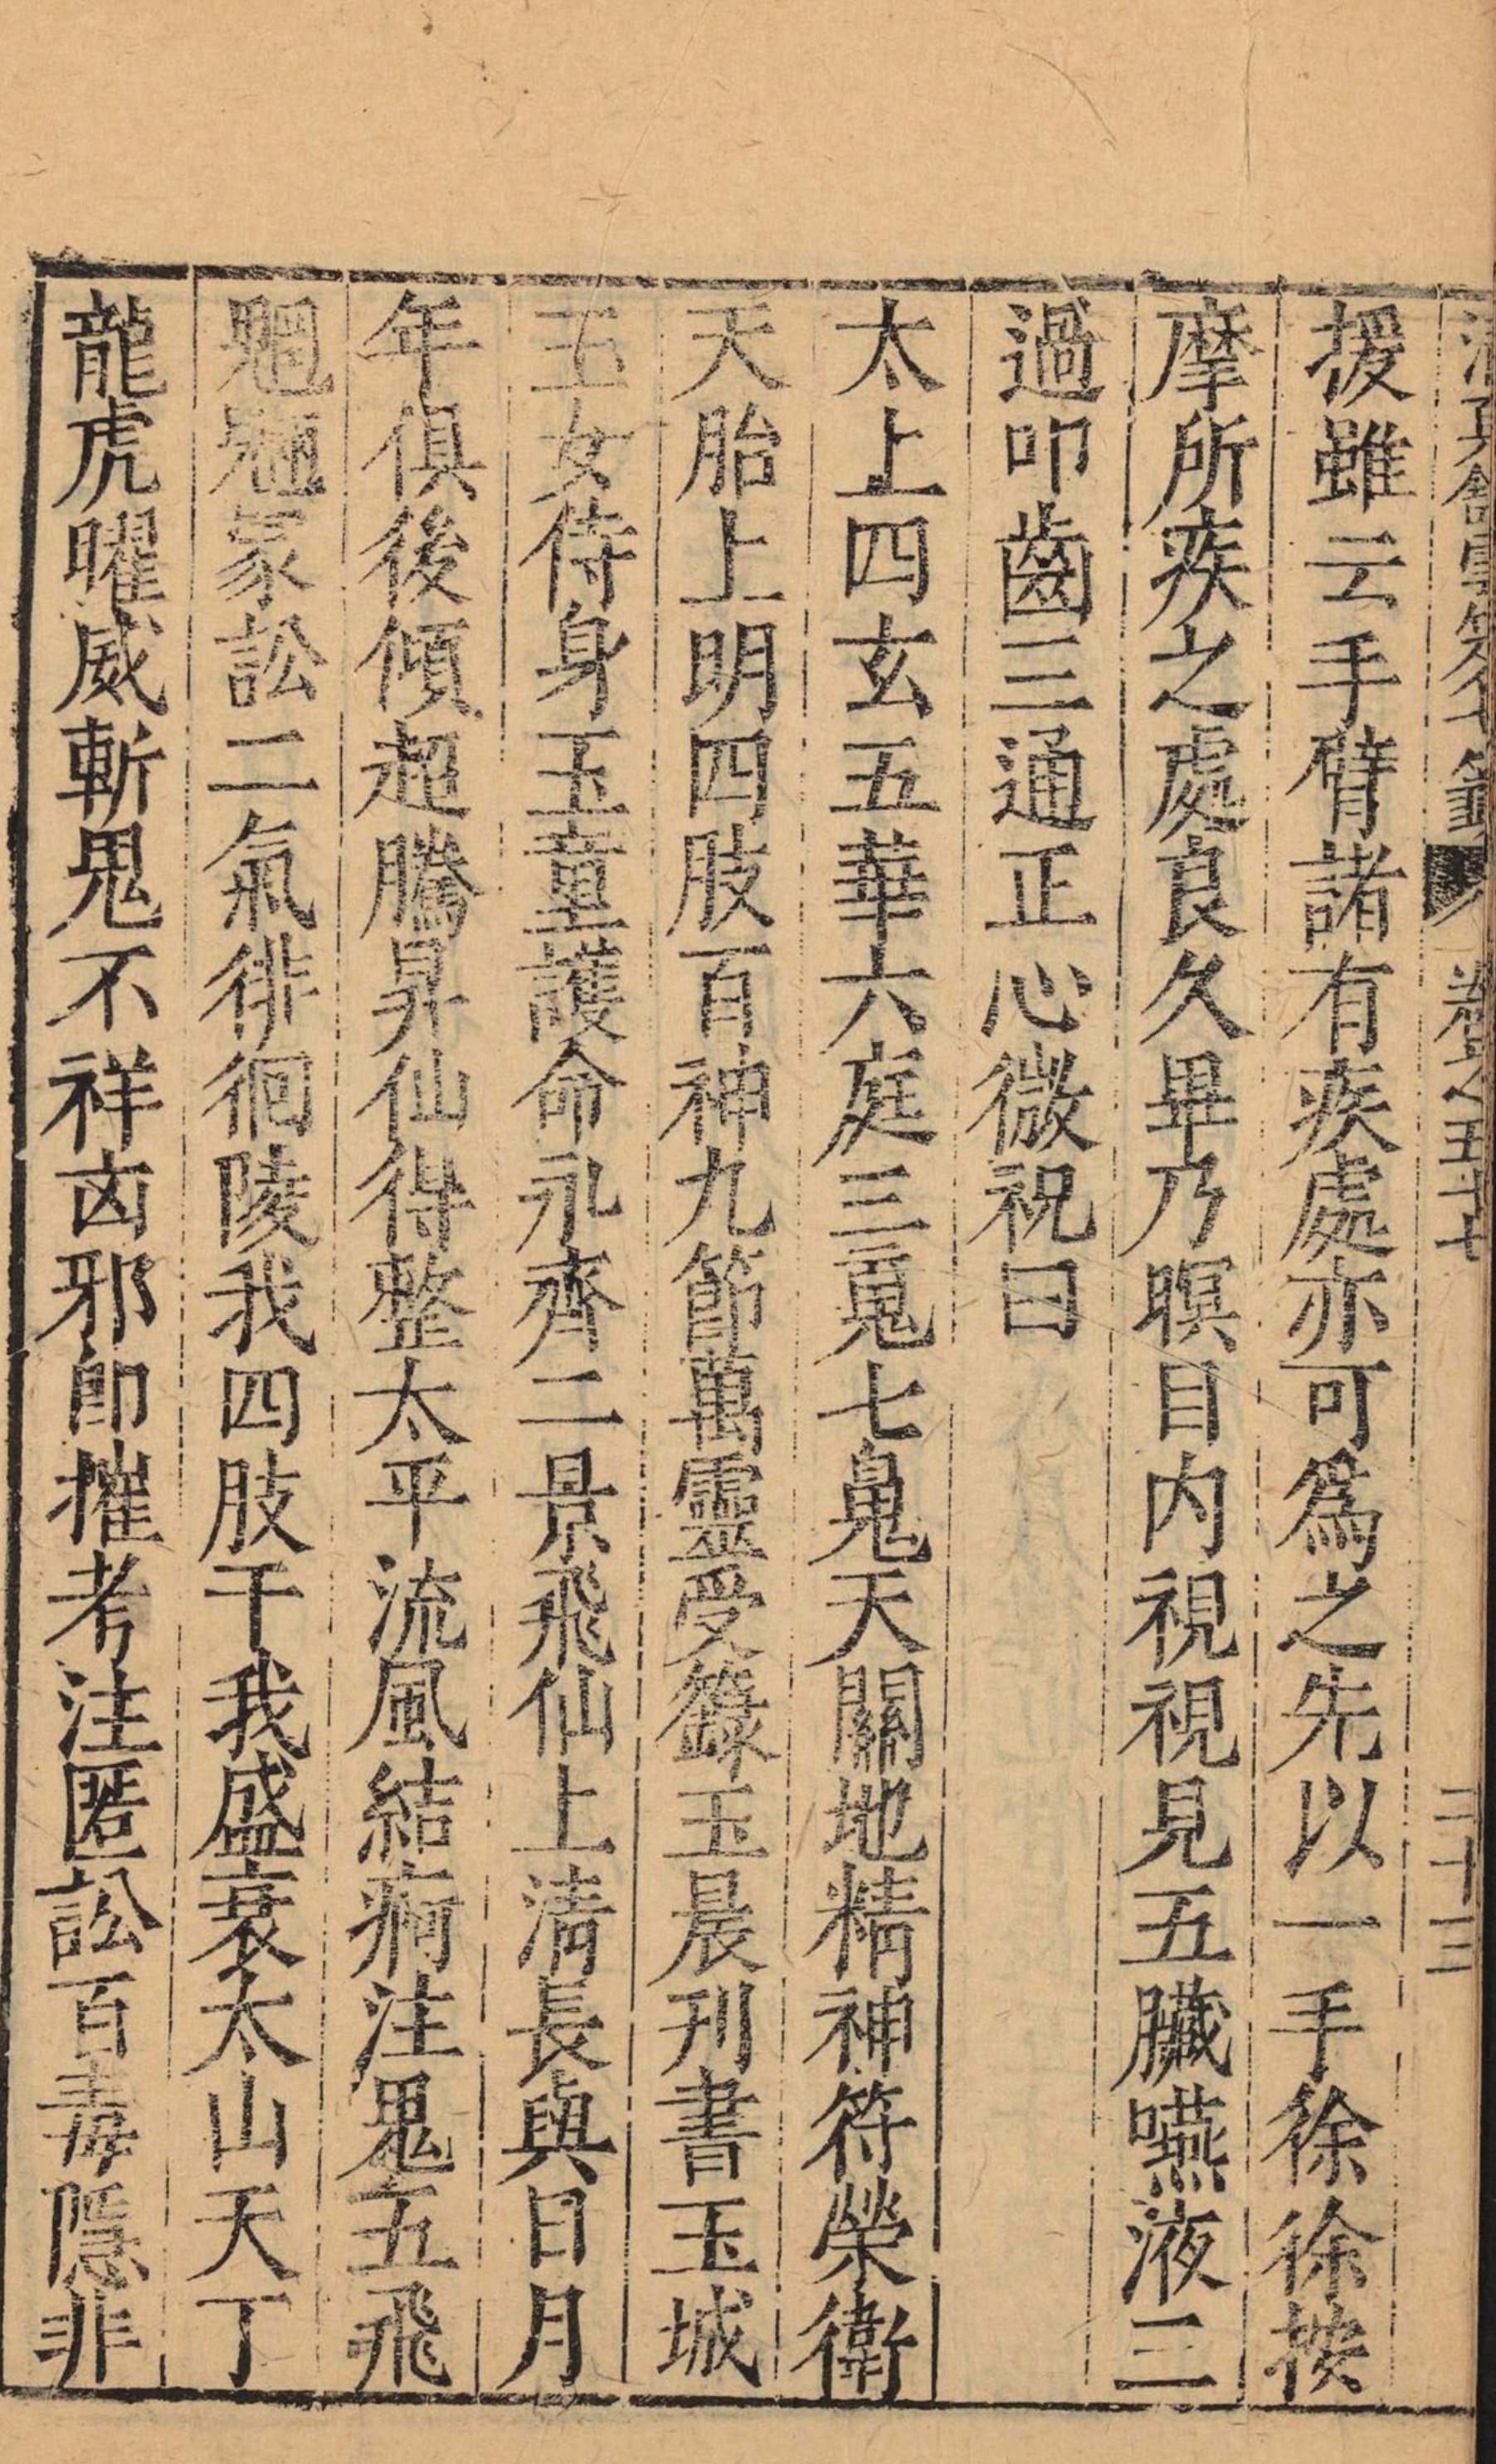 清真館雲笈七籤 卷之五十七 二十三
援雖云手臂諸有疾處亦可爲之先以一手徐徐按
摩所疾之處良久畢乃瞑目内視視見五臟嚥液三
過叩齒三通正心微祝曰
太上四玄五華六庭三䰟七䰟天關地精神符榮衛
天胎上明四肢百神九節萬靈受籙玉晨刋書玉城
玉女侍身玉童護命永齊二景飛仙上清長與日月
年俱後傾超騰昇仙得整太平流風結痾注鬼五飛
魍魎冢訟二氣徘徊陵我四肢干我盛衰太山天丁
龍虎曜威斬鬼不祥凶邪即摧考注匿訟百毒隱非